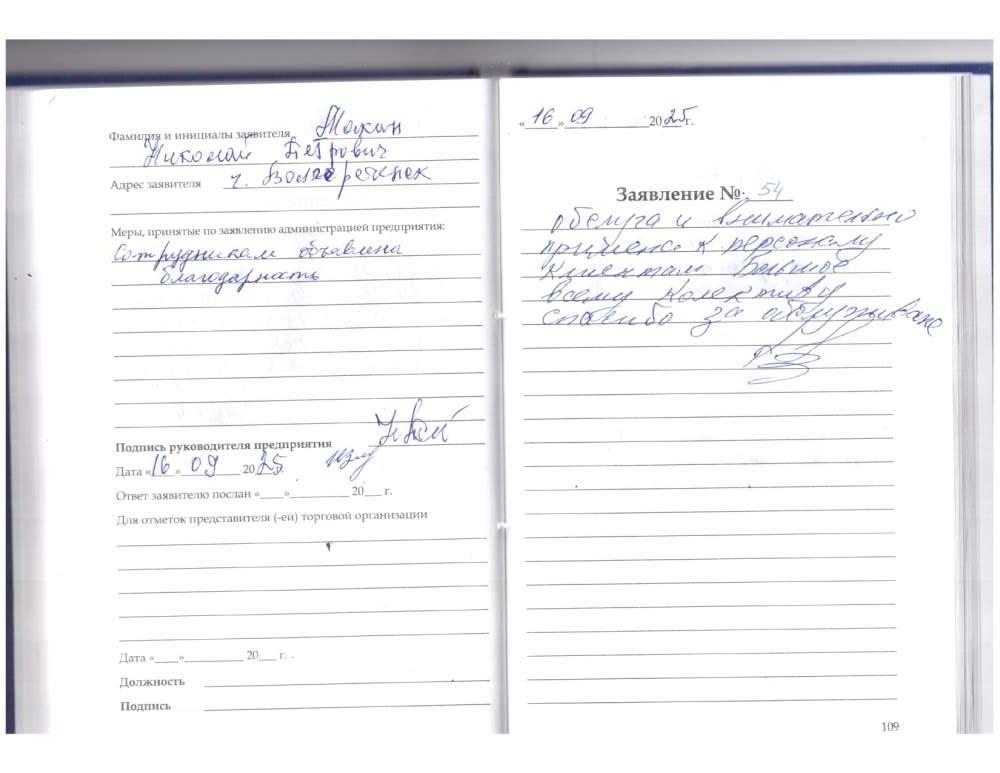 Фамилия и инициалы заявителя Мохин
Николай Петрович
Адрес заявителя г. Волгореченск
Меры, принятые по заявлению администрацией предприятия:
Сотрудникам объявлена
благодарность
Подпись руководителя предприятия
Дата «16» 09 2025г.
Ответ заявителю послан «____»__________ 20___ г.
Для отметок представителя (-ей) торговой организации
Дата «____»__________ 20___ г. .
Должность
Подпись
«16» 09 2025г.
Заявление №· 54
обслуга и внимательно
к персоналу
Клиентам Большое
всему Колективу
спасибо за
109